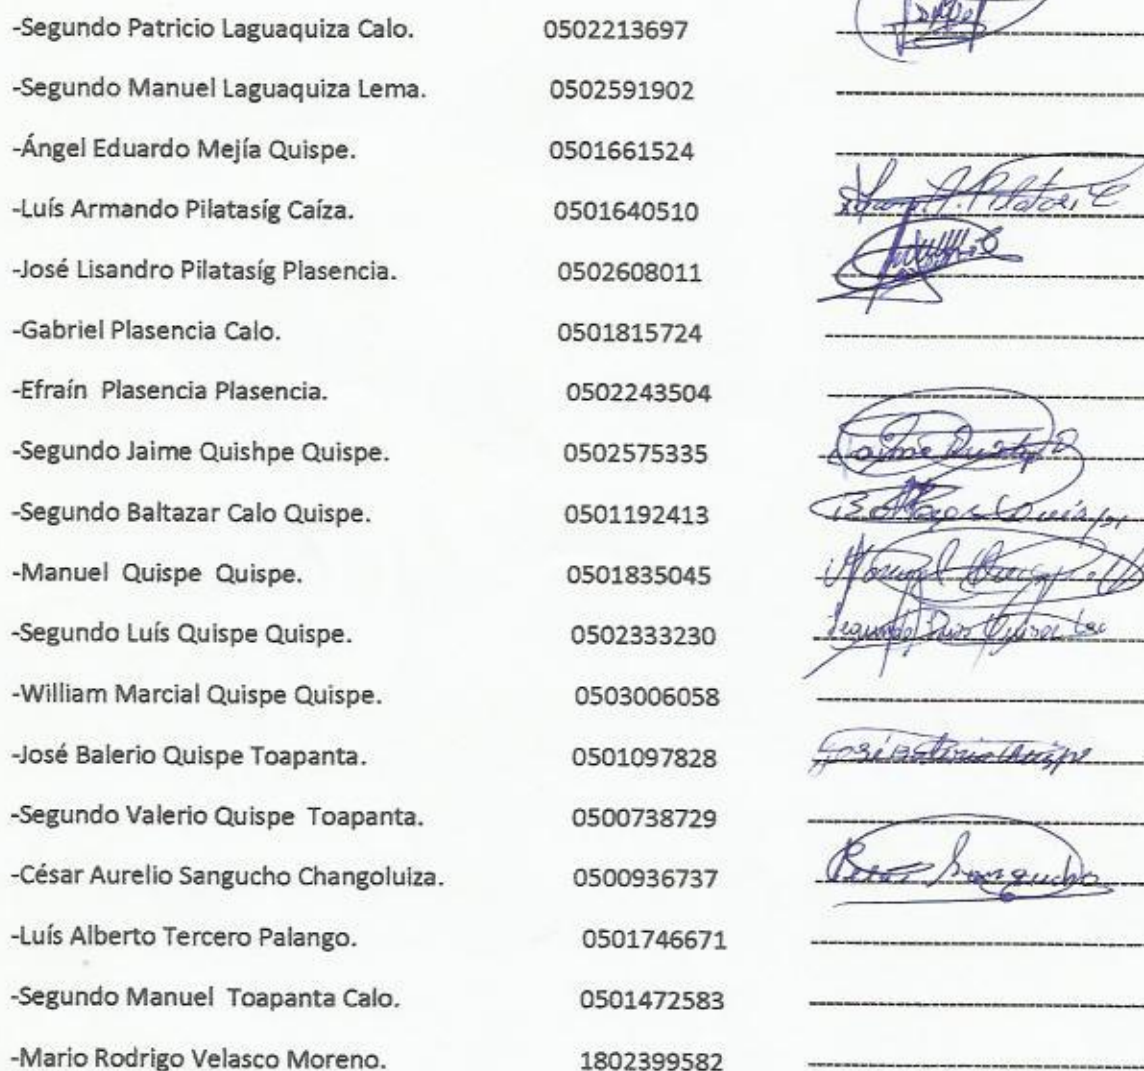 -Segundo Patricio Laguaquiza Calo. 0502213697
-Segundo Manuel Laguaquiza Lema. 0502591902
-Ángel Eduardo Mejía Quispe. 0501661524
-Luís Armando Pilatasíg Caíza. 0501640510
-José Lisandro Pilatasíg Plasencia. 0502608011
-Gabriel Plasencia Calo. 0501815724
-Efraín Plasencia Plasencia. 0502243504
-Segundo Jaime Quishpe Quispe. 0502575335
-Segundo Baltazar Calo Quispe. 0501192413
-Manuel Quispe Quispe. 0501835045 Manuel
-Segundo Luís Quispe Quispe. 0502333230 Segundo Luis
-William Marcial Quispe Quispe. 0503006058
-José Balerio Quispe Toapanta. 0501097828
-Segundo Valerio Quispe Toapanta. 0500738729
-César Aurelio Sangucho Changoluiza. 0500936737 Sangucho
-Luís Alberto Tercero Palango. 0501746671
-Segundo Manuel Toapanta Calo. 0501472583
-Mario Rodrigo Velasco Moreno. 1802399582